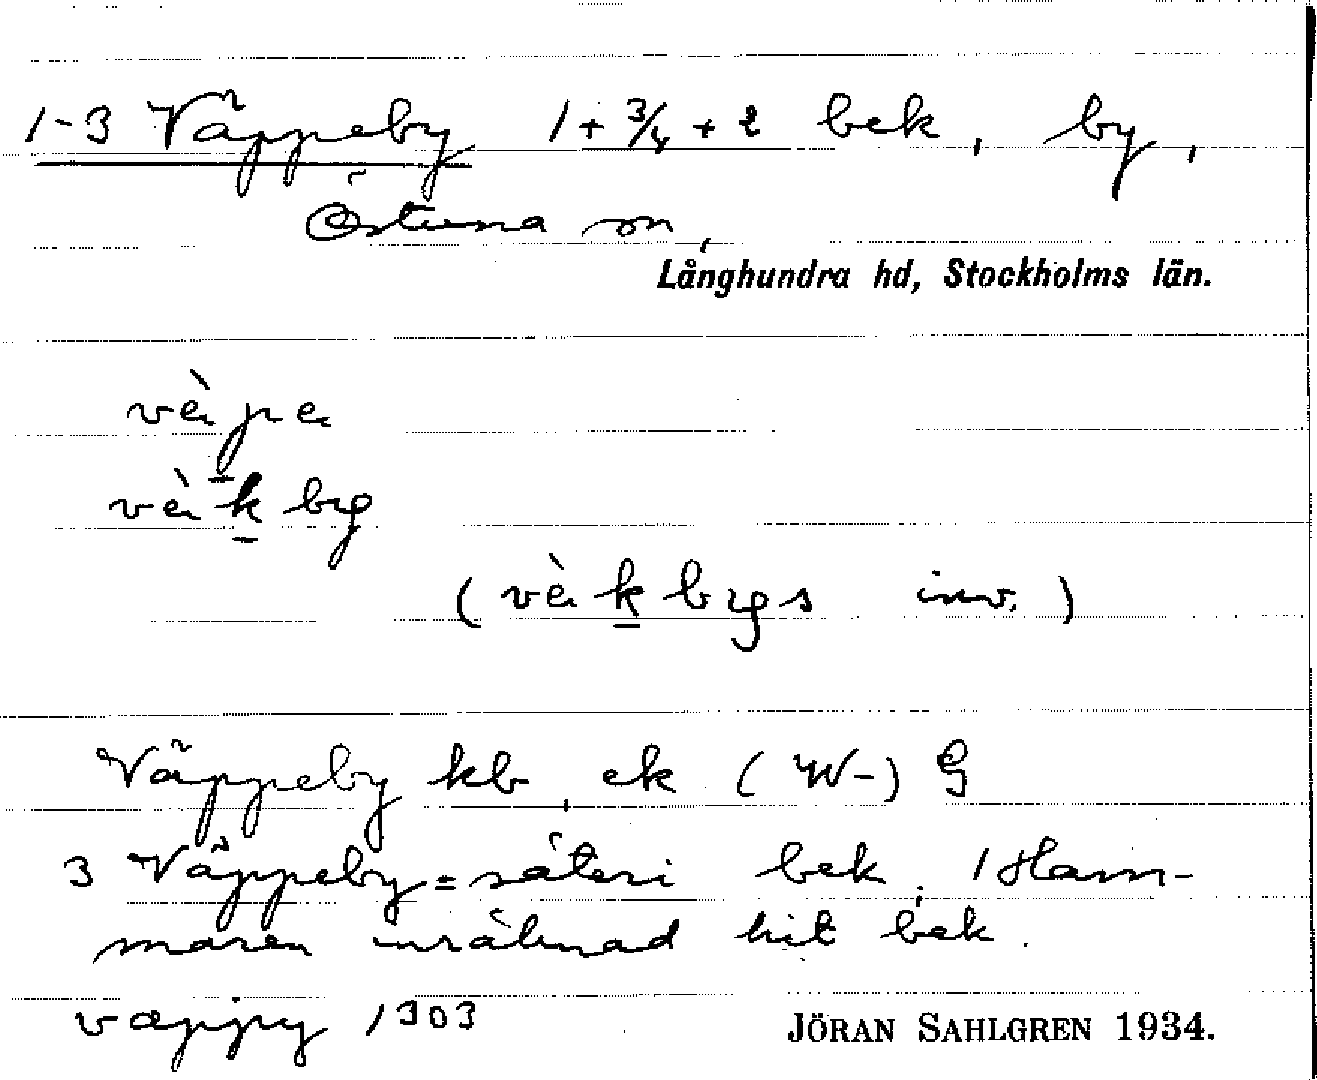 1-3 Väppeby 1 + 3/4 + 2 bek, by,
Östuna sn,
Långhundra hd, Stockholms län.
vèpe
vèkby
(vèkbys inv.)
Väppeby kb, ek (W-) G
3 Väppeby = säteri bek; 1 Ham-
maren inräknad hit bek.
væppy 1303
JÖRAN SAHLGREN 1934.